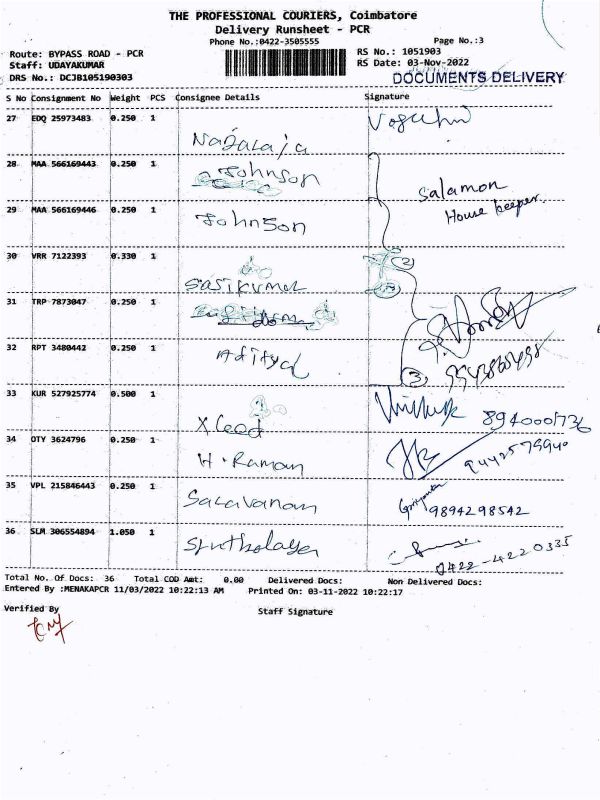 THE PROFESSIONAL COURIERS, Coimbatore
Delivery Runsheet - PCR
Phone No.:0422-3505555
Page No.:3
Route: BYPASS ROAD - PCR
RS No.: 1051903
Staff: UDAYAKUMAR
RS Date: 03-Nov-2022
DRS No.: DCJB105190303
DOCUMENTS DELIVERY
S No Consignment No Weight PCS Consignee Details Signature
27 EDQ 25973483 0.250 1
Nagaraja
28 MAA 566169443 0.250 1
Johnson
Salamon
House keeper
29 MAA 566169446 0.250 1
Johnson
30 VRR 7122393 0.330 1
(2)
Sasikumar
31 TRP 7873047 0.250 1
32 RPT 3480442 0.250 1
Aditya
(3)
33 KUR 527925774 0.500 1
X Lead
34 OTY 3624796 0.250 1
H. Raman
35 VPL 215846443 0.250 1
Saravanan
9894298542
36 SLM 306554894 1.050 1
0422-4220335
Total No. Of Docs: 36 Total COD Amt: 0.00 Delivered Docs: Non Delivered Docs:
Entered By :MENAKAPCR 11/03/2022 10:22:13 AM Printed On: 03-11-2022 10:22:17
Verified By
Staff Signature